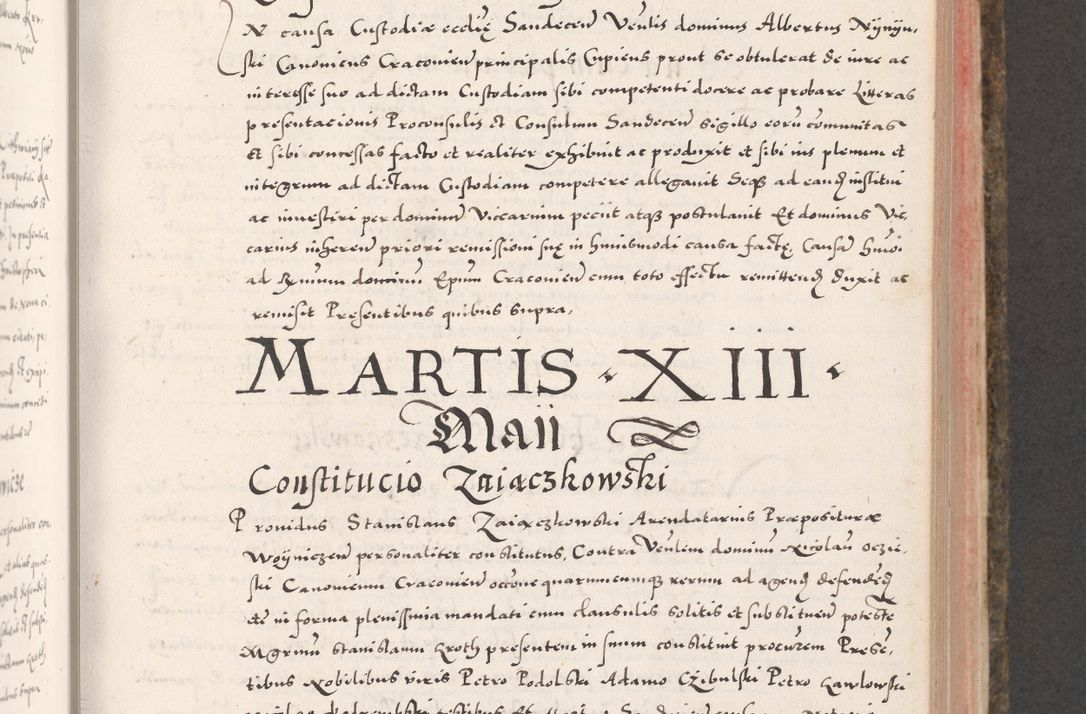 N causa Custodiæ ecclię Sandecen̄ Ven̄lis dominus Albertus Nÿnÿn,
ski Canonicus Cracovien̄ principalis Cupiens prout se obtulerat de iure ac
interesse suo ad dictam Custodiam sibi competenti docere ac probare Litteras
presentacionis Proconsulis et Consulum Sandecen̄ sigillo eorū com̄unitas
et sibi concessas facto et realiter exhibuit ac produxit et sibi ius plenum et
integrum ad dictam Custodiam competere allegavit Seq3 ad eand̄ institui
ac investiri per dominum̄ Vicearium peciit atq3 postulavit Et dominus Vic,
carius inheren̄ priori remissioni suę in huiusmodi causa factę, Causam̄ hmōi
ad Rmum dominū Epūm Cracovien̄ cum toto effectu remittend̄ duxit ac
remisit Presentibus quibus supra,
MARTIS · XIII ·
Maii
Constitucio Zaiączkowski
Providus Stanislaus Zaiączkowski Arendatarius Præposituræ
Woÿniczen̄ personaliter constitutus, Contra Ven̄lem dominū Nicolaū Oczie,
ski Canonicum Cracovien̄ occōne quarumcumq3 rerum ad agend̄ defendēd̄
etc̄ in forma plenissima mandati cum clausulis solitis et substituen̄ potestē
Mgrum̄ Stanislaum Kroth presentem in suum constituit procūrem Prese,
tibus Nobilibus viris Petro Podolski Adamo Czibulski Petro Lawlowski